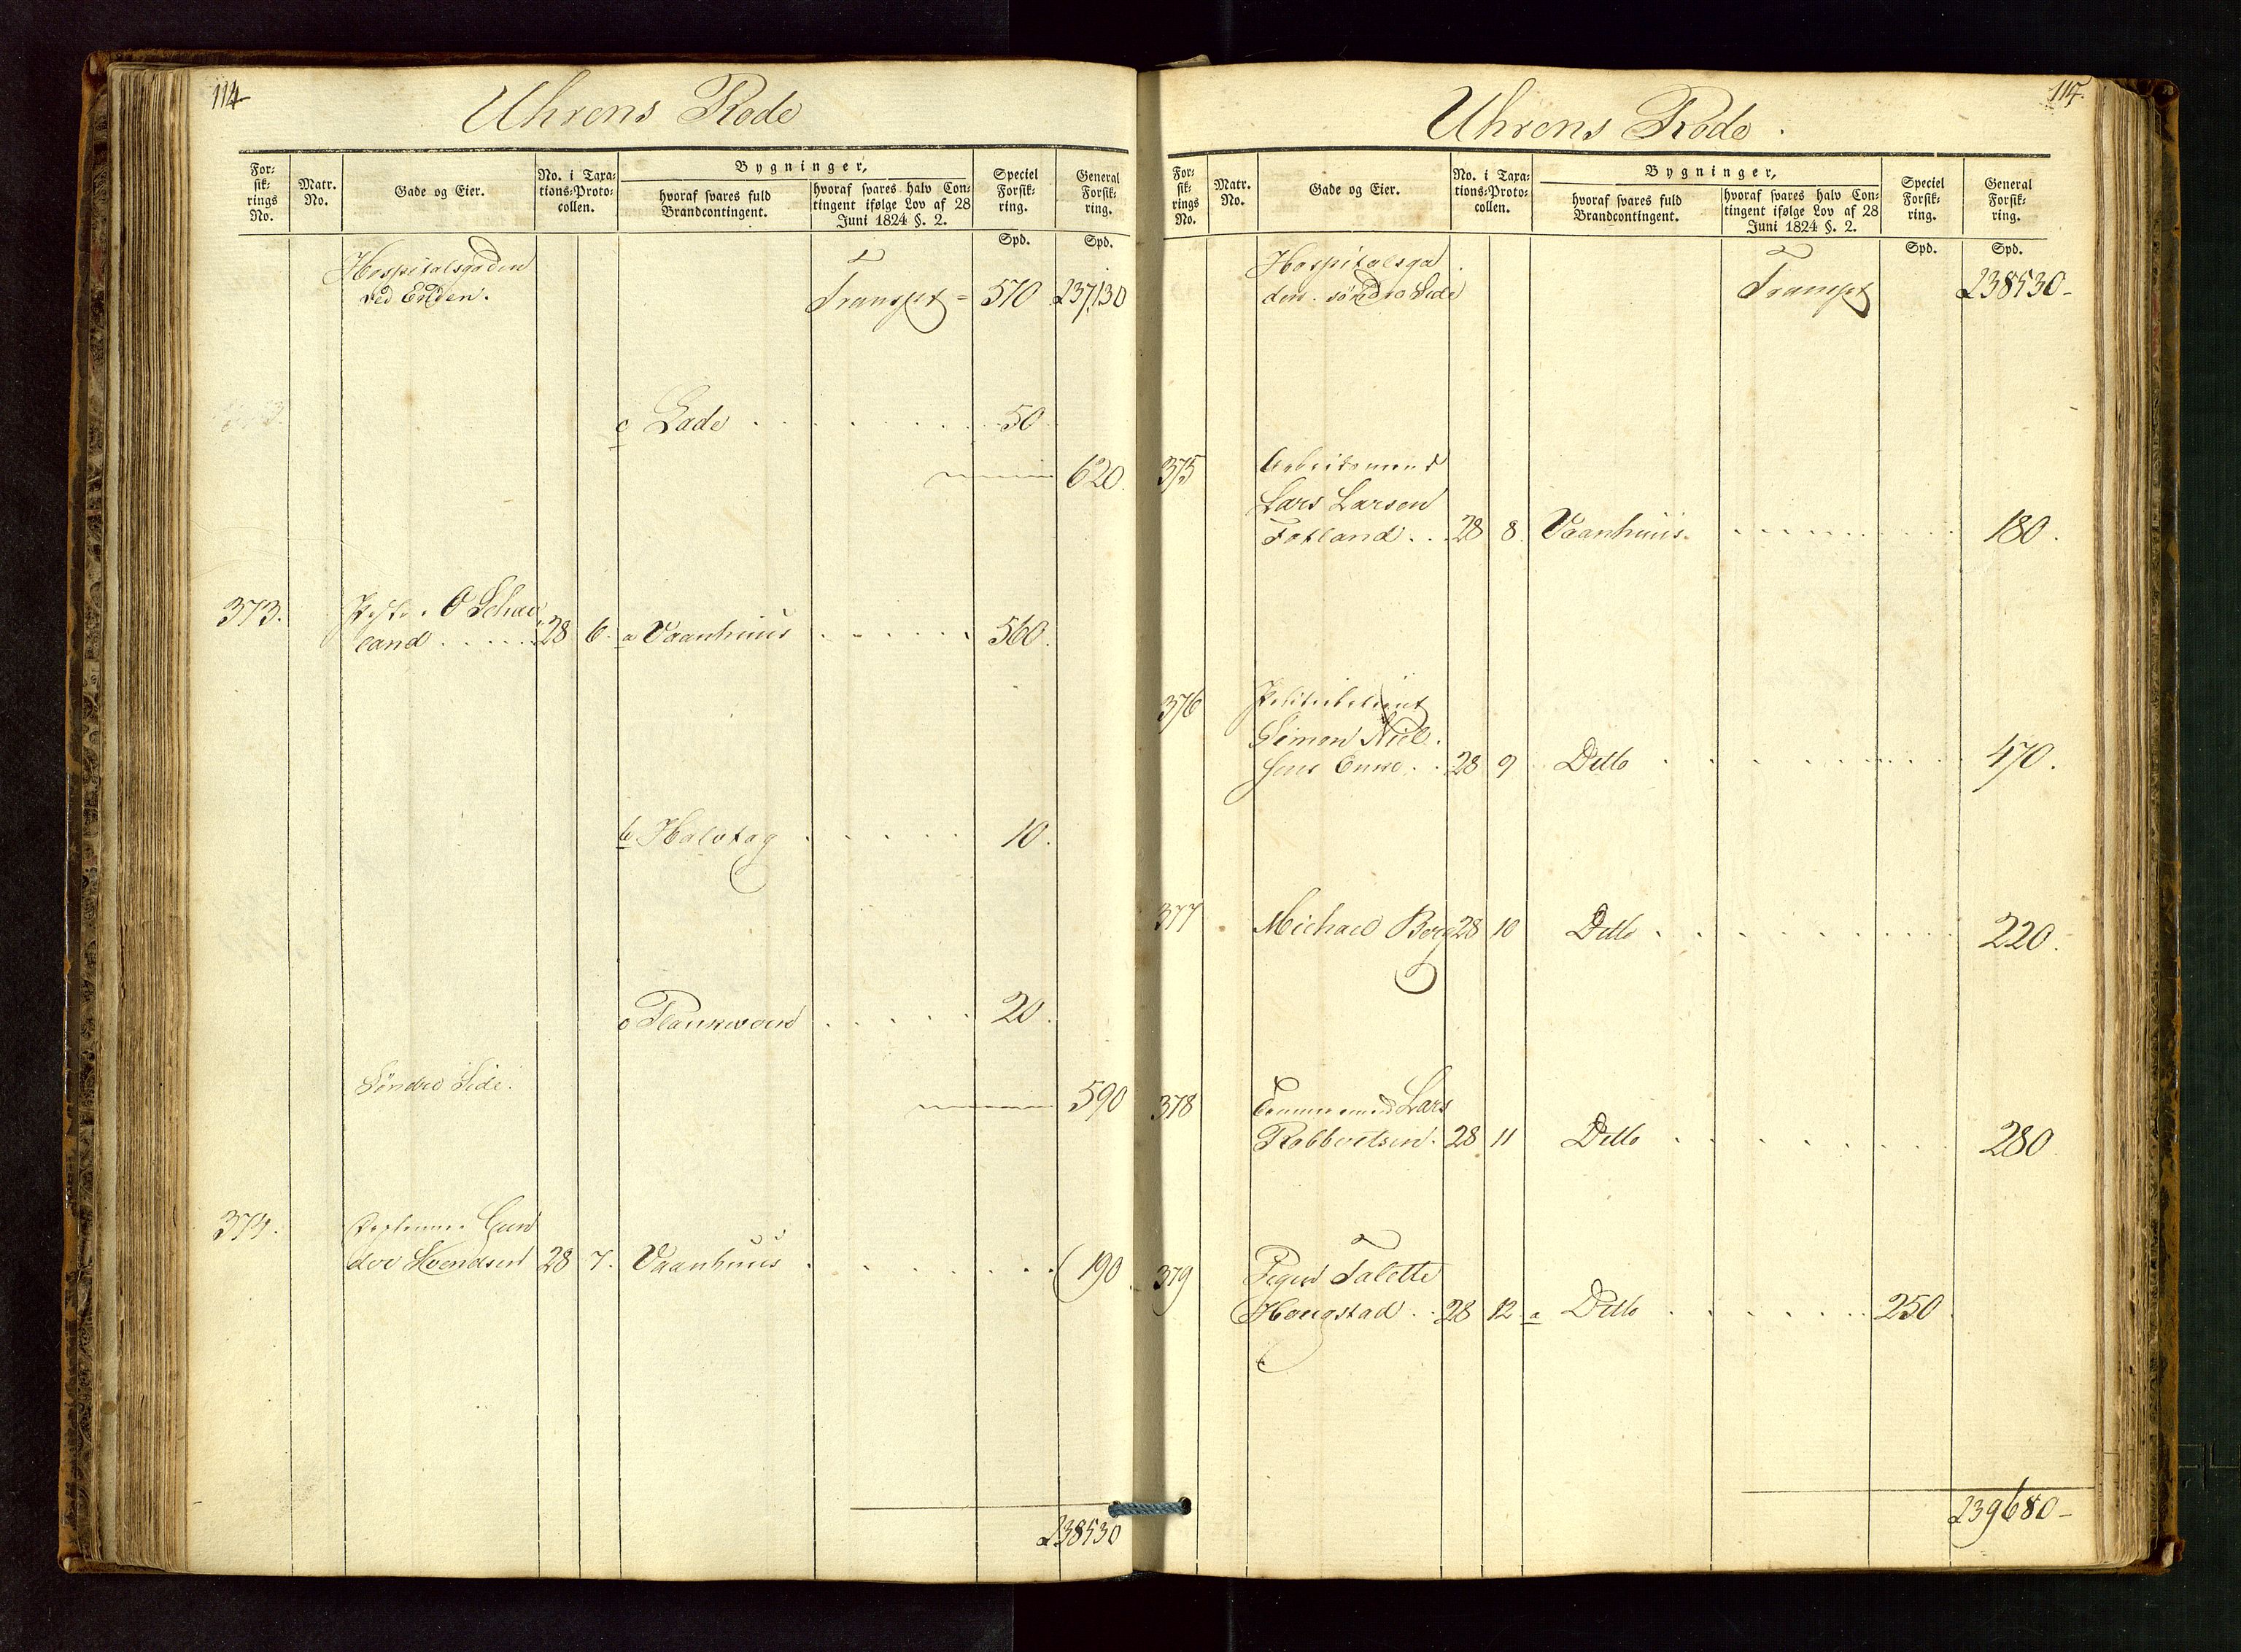 114
Uhrens Rode
For:
sik:
rings
No.
Matr.
No.
Gade og Eier.
No. i Taxa:
tions=Proto:
collen.
Bygninger,
hvoraf svares fuld
Brandcontingent.
hvoraf svares halv Con:
tingent ifølge Lov af 28
Juni 1824 §. 2.
Speciel
Forsik:
ring.
General
Forsik:
ring.
Spd. Spd.
Hospitalsgaden
ved Enden.
Transpt = 570 237,130
c Lade . . . . . . . . 50
620.
373. O Schae
land . . . . . 28 6. a Vaanhuus . . . . . 560.
b Halvtag . . . . . 10.
c Plankværk . . . . . 20.
Søndre Side.
590
374. Gun
der Svendsen 28 7. Vaanhuus . . . . . . . 190
238530
115.
Uhrens Rode.
For:
sik:
rings
No.
Matr.
No.
Gade og Eier.
No. i Taxa:
tions=Proto:
collen.
Bygninger,
hvoraf svares fuld
Brandcontingent.
hvoraf svares halv Con:
tingent ifølge Lov af 28
Juni 1824 §. 2.
Speciel
Forsik:
ring.
General
Forsik:
ring.
Spd. Spd.
Hospitalsga
den. söndre Side
Transpt 238530-
375 Arbeidsmand
Lars Larsen
Fotland . . . 28 8. Vaanhuus. . . . . . . . 180.
376 Politibetjent
Simon Niel.
sens Enke . . 28 9 Ditto . . . . . . . . 470.
377 Michael Berg 28 10 Ditto . . . . . . . . 220.
378 Tømmermand Lars
Robbertsen. 28 11 Ditto . . . . . . . . 280
379 Pigen Talette
Hougstad . . 28 12 a Ditto . . . . . . . 250.
239680-